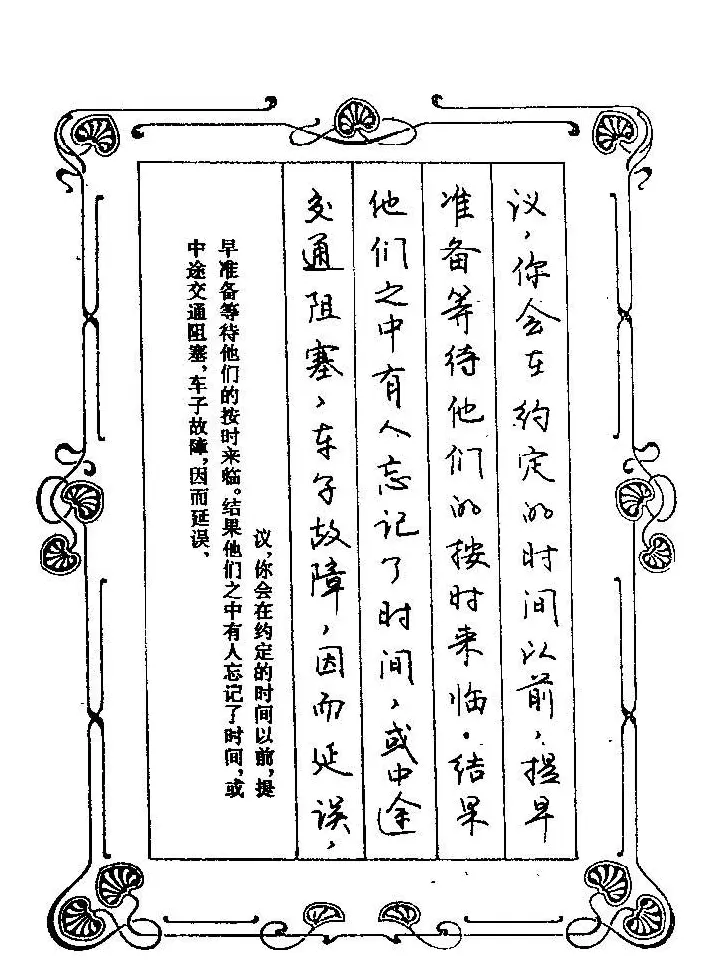 议，你会在约定的时间以前，提早
准备等待他们的按时来临。结果
他们之中有人忘记了时间，或中途
交通阻塞，车子故障，因而延误，
议，你会在约定的时间以前，提
早准备等待他们的按时来临。结果他们之中有人忘记了时间，或
中途交通阻塞，车子故障，因而延误、